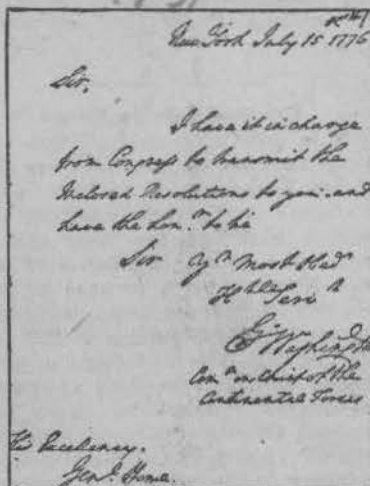 New York July 15 1776
Sir,
I have it in charge
from Congress to transmit the
Inclosed Resolutions to you. and
have the Honr. to be
Sir Yr. Most Obed
Hble Servt
Go Washington
Comr. in Chief of the
Continental Forces
His Excellency.
Genl. Howe.